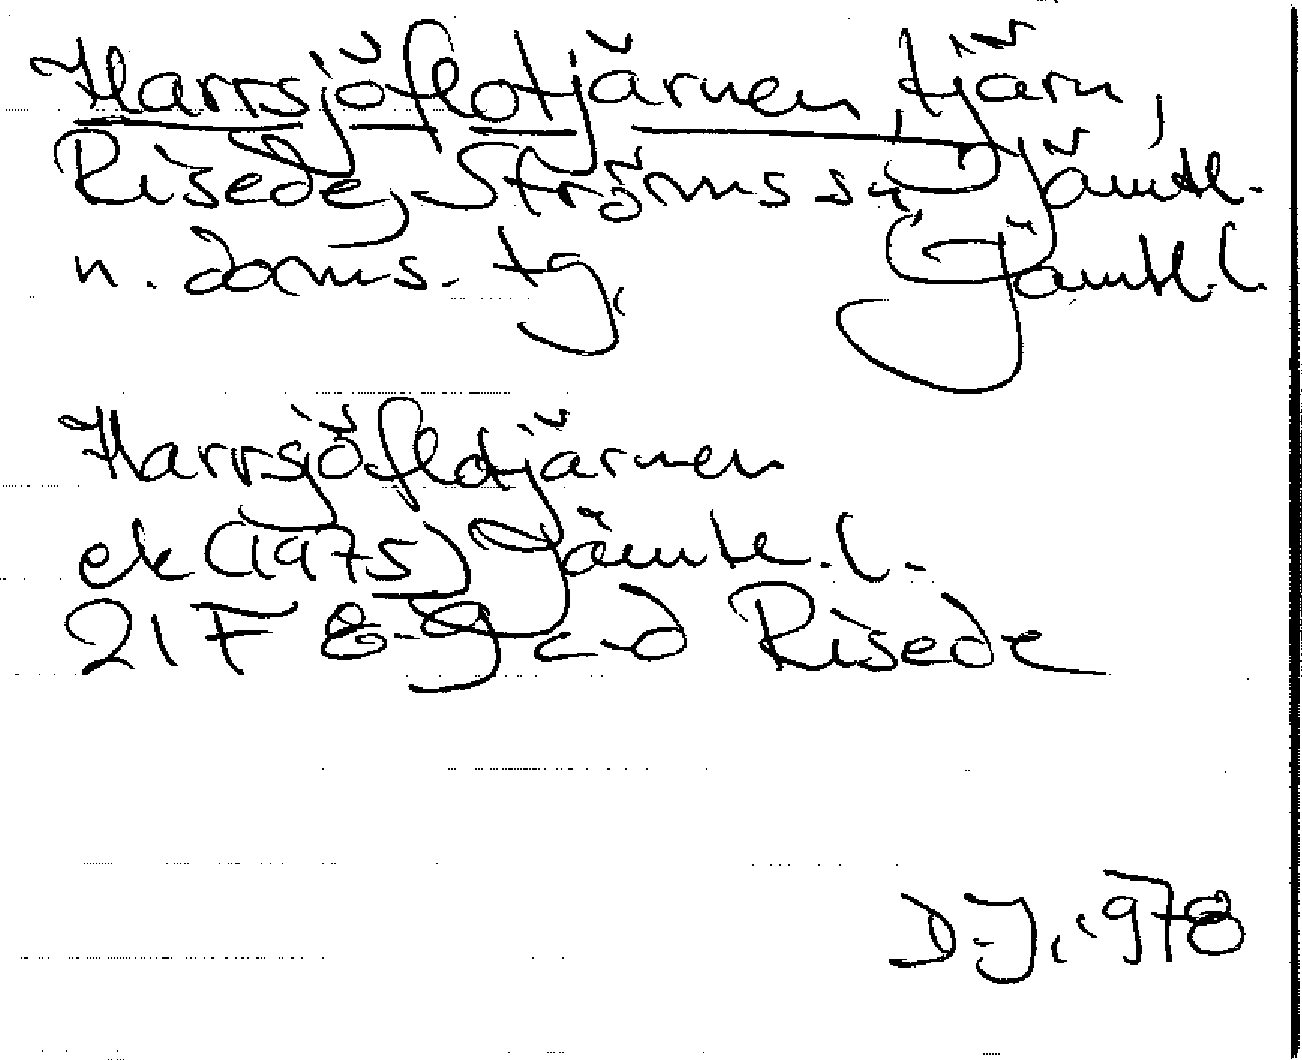 Harrsjöflotjärnen, tjärn,
Risede, Ströms sn, Jämtl.
n. doms. tg, Jämtl. l.
Harrsjöflotjärnen
ek (1975) Jämtl. l.
21 F 8-9 c-d Risede
D.J. 1978